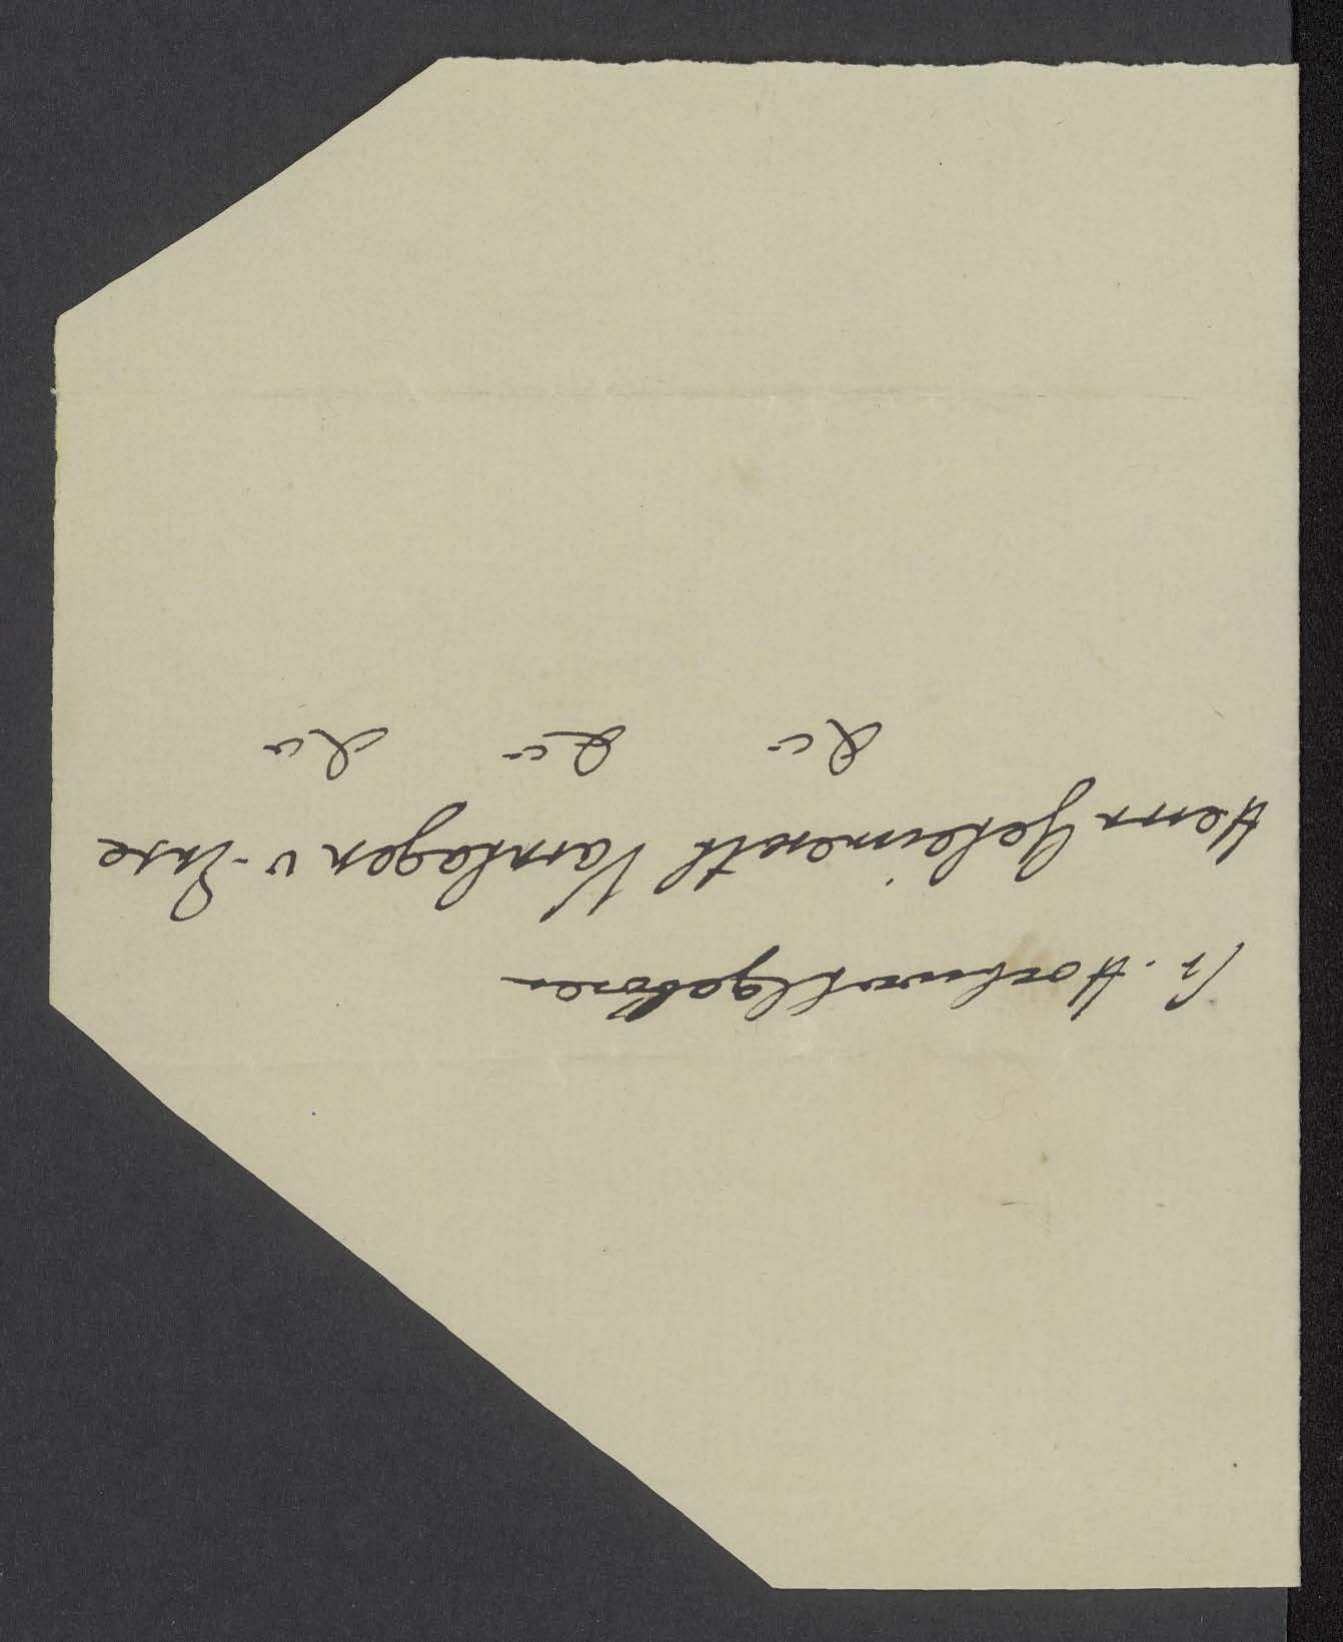 Sr. Hochwohlgeboren
Herrn Geheimerath Varnhagen v. Ense